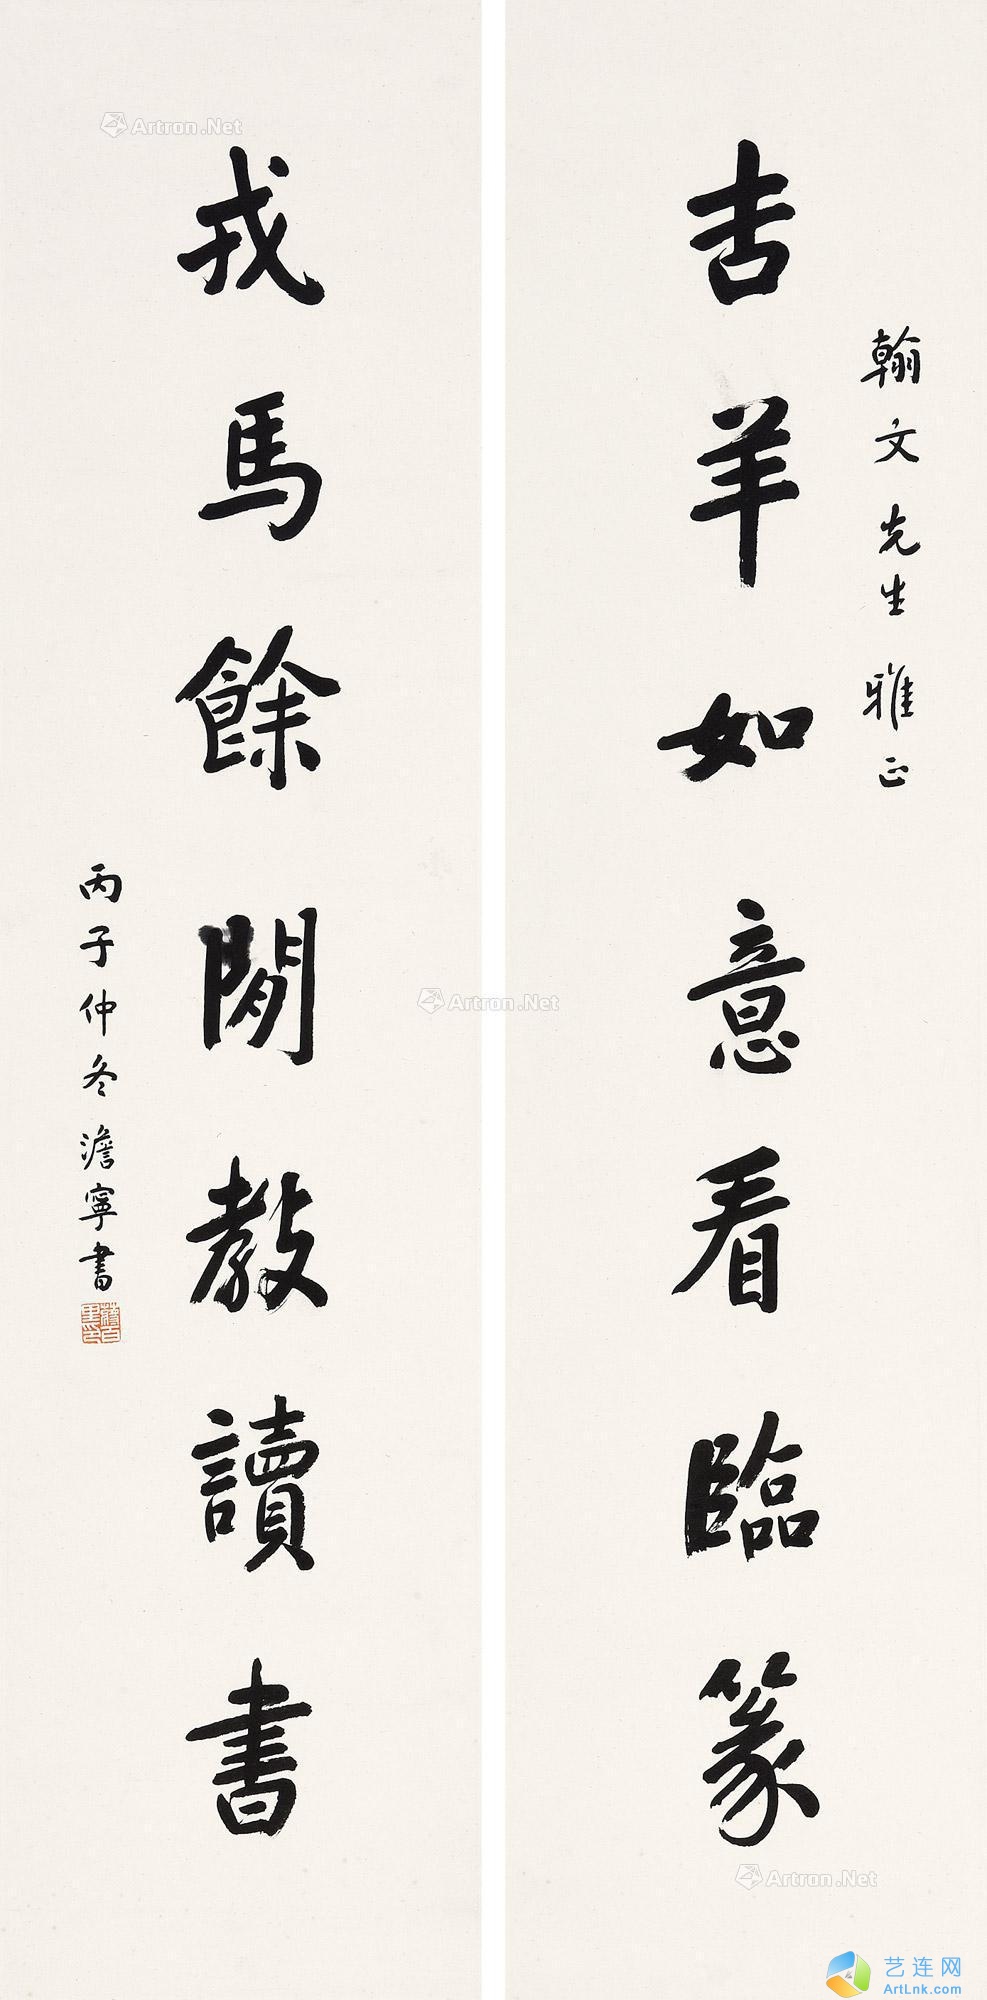 翰文先生雅正
吉羊如意看臨篆
戎馬餘閒教讀書
丙子仲冬澹寧書
蔣百里印
Artron.Net
Artron.Net
Artron.Net
艺连网
ArtLnk.com